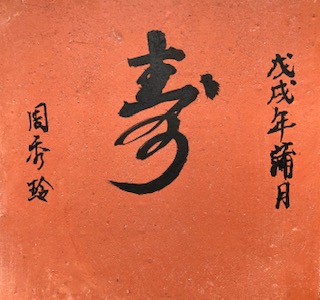 戊戌年蒲月
寿
周秀玲